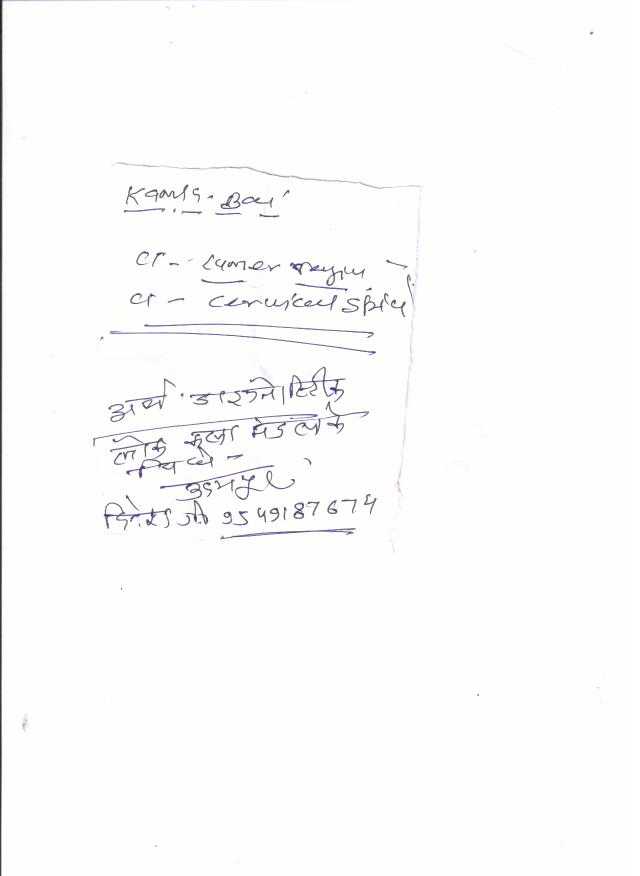 Kamla Bai
CT - Lumer region
CT - Cervical Spine
अर्थ डाइग्नोस्टिक
लोक कला मंडल के
पिछे -
उदयपुर
दिनेश जी 9549187674